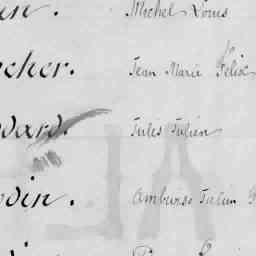 in. Michel Louis
cher. Jean Marie Felix
dard. Jules Julien
din. Ambroise Julien